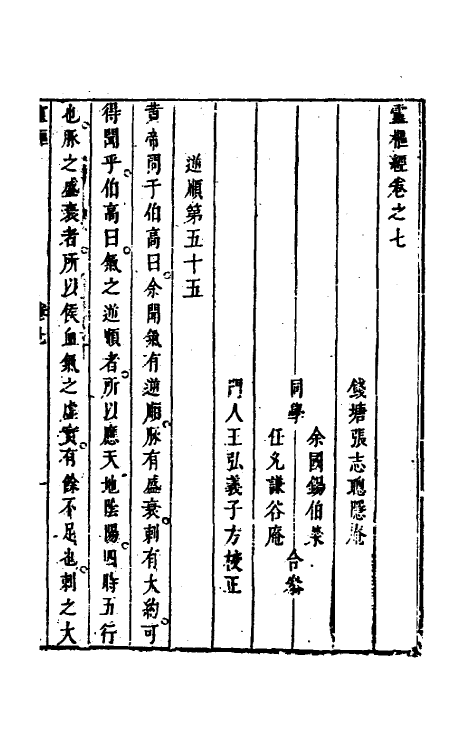 靈樞經卷之七
錢塘張志聰隱菴
余國錫伯榮
同學
任允謙谷庵
合參
門人王弘義子方校正
逆順第五十五
黃帝問于伯高曰余聞氣有逆順脉有盛衰刺有大約可
得聞乎伯高曰氣之逆順者所以應天地陰陽四時五行
也脉之盛衰者所以候血氣之虛實有餘不足也刺之大
卷七
一